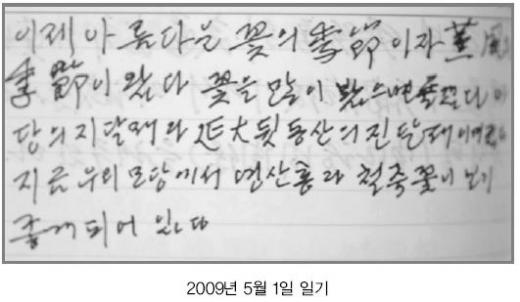 이제 아름다운 꽃의 季節이자 薰風의
季節이 왔다 꽃을 많이 봤으면
당의 지달래와 延大 뒷동산의 진달래
지금 우리 모당에서 연산홍과 철죽꽃이 보기
좋게 되어 있다
2009년 5월 1일 일기